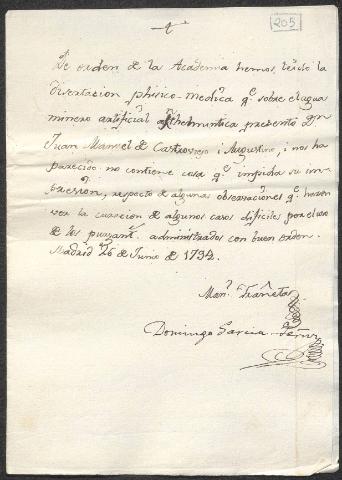 205
De orden de la Academia hemos leido la
disertacion phisico-medica qe sobre el agua
minero artificial anthelmintica presentó Dn
Juan Manuel de Castro i Augustine, i nos ha
parecido no contiene cosa qe impida su im
presion, respecto de algunas observaciones qe hacen
ver la curacion de algunos casos dificiles por el uso
de los purgant. administrados con buen orden.
Madrid 26 de Junio de 1794.
Manl
Domingo Garcia Fernz